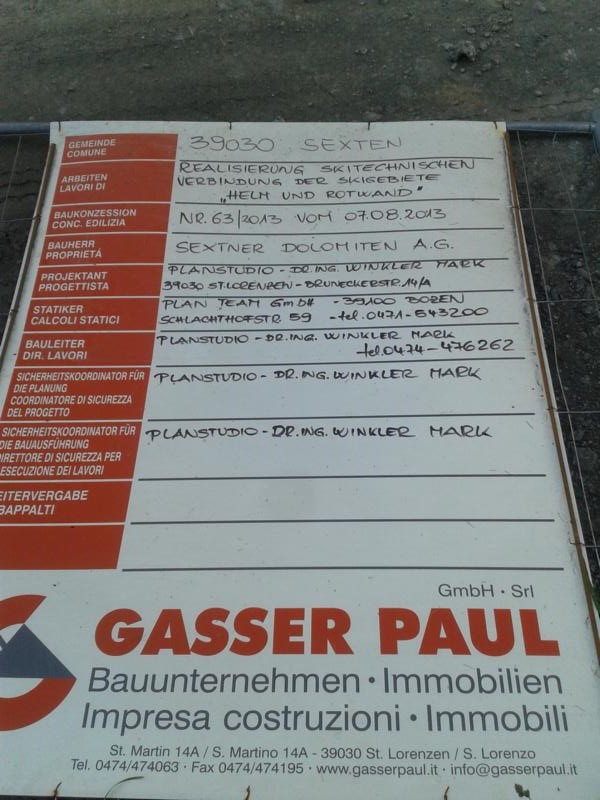 GEMEINDE
COMUNE
39030 SEXTEN
ARBEITEN
LAVORI DI
REALISIERUNG SKITECHNISCHEN
VERBINDUNG DER SKIGEBIETE
„HELM UND ROTWAND"
BAUKONZESSION
CONC. EDILIZIA
NR. 63/2013 VOM 07.08.2013
BAUHERR
PROPRIETÁ
SEXTNER DOLOMITEN A.G.
PROJEKTANT
PROGETTISTA
PLANSTUDIO - DR. ING. WINKLER MARK
39030 ST. LORENZEN - BRUNECKERSTR. 14/A
STATIKER
CALCOLI STATICI
PLAN TEAM GmbH - 39100 BOZEN
SCHLACHTHOFSTR 59 - tel. 0471 - 543200
BAULEITER
DIR. LAVORI
PLANSTUDIO - DR. ING. WINKLER MARK
tel. 0474 - 476262
SICHERHEITSKOORDINATOR FÜR
DIE PLANUNG
COORDINATORE DI SICUREZZA
DEL PROGETTO
PLANSTUDIO - DR. ING. WINKLER MARK
SICHERHEITSKOORDINATOR FÜR
DIE BAUAUSFÜHRUNG
DIRETTORE DI SICUREZZA PER
ESECUZIONE DEI LAVORI
PLANSTUDIO - DR. ING. WINKLER MARK
EITERVERGABE
BAPPALTI
GmbH · Srl
GASSER PAUL
Bauunternehmen · Immobilien
Impresa costruzioni · Immobili
St. Martin 14A / S. Martino 14A - 39030 St. Lorenzen / S. Lorenzo
Tel. 0474/474063 · Fax 0474/474195 · www.gasserpaul.it · info@gasserpaul.it